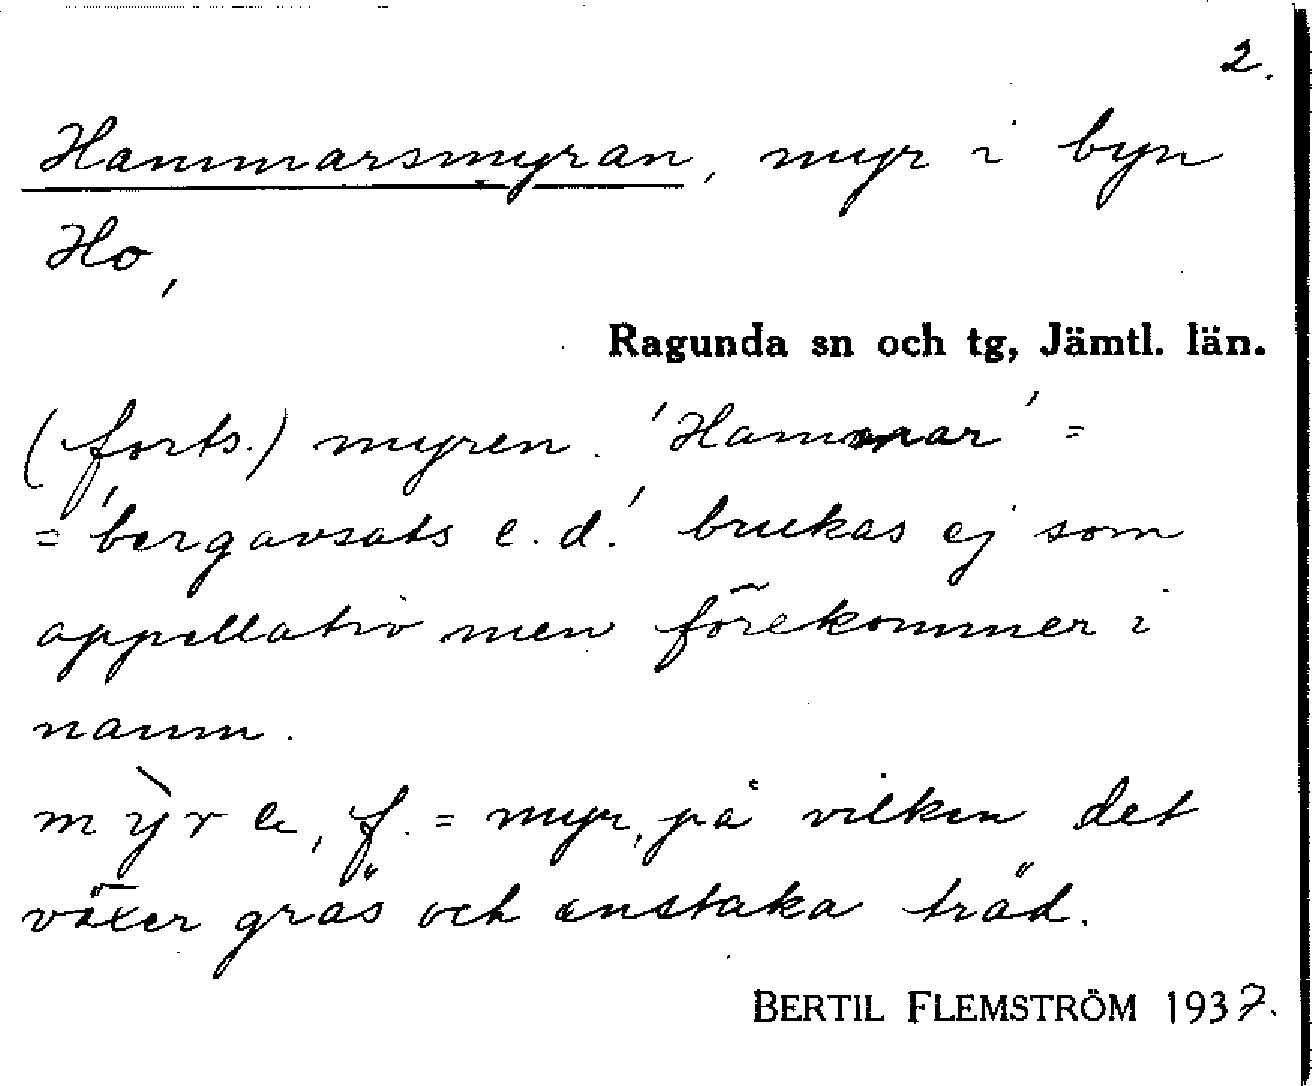 2.
Hammarsmyran, myr i byn
Ho,
Ragunda sn och tg, Jämtl. län.
(forts.) myren. 'Hammar' =
= 'bergavsats e.d.' brukas ej som
appellativ men förekommer i
namn.
mỳr e, f. = myr, på vilken det
växer gräs och enstaka träd.
BERTIL FLEMSTRÖM 1937.